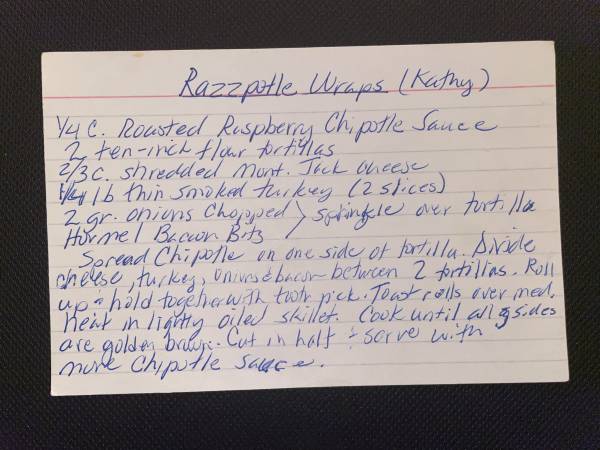 Razzpotle Wraps (Kathy)
1/4 C. Roasted Raspberry Chipotle Sauce
2 ten-inch flour tortillas
2/3 c. shredded Mont. Jack cheese
1/4 lb thin smoked turkey (2 slices)
2 gr. onions chopped } sprinkle over tortilla
Hormel Bacon Bits
Spread Chipotle on one side of tortilla. Divide
cheese, turkey, onions & bacon between 2 tortillas. Roll
up & hold together with tooth pick. Toast rolls over med.
heat in lightly oiled skillet. Cook until all sides
are golden brown. Cut in half & serve with
more Chipotle Sauce.